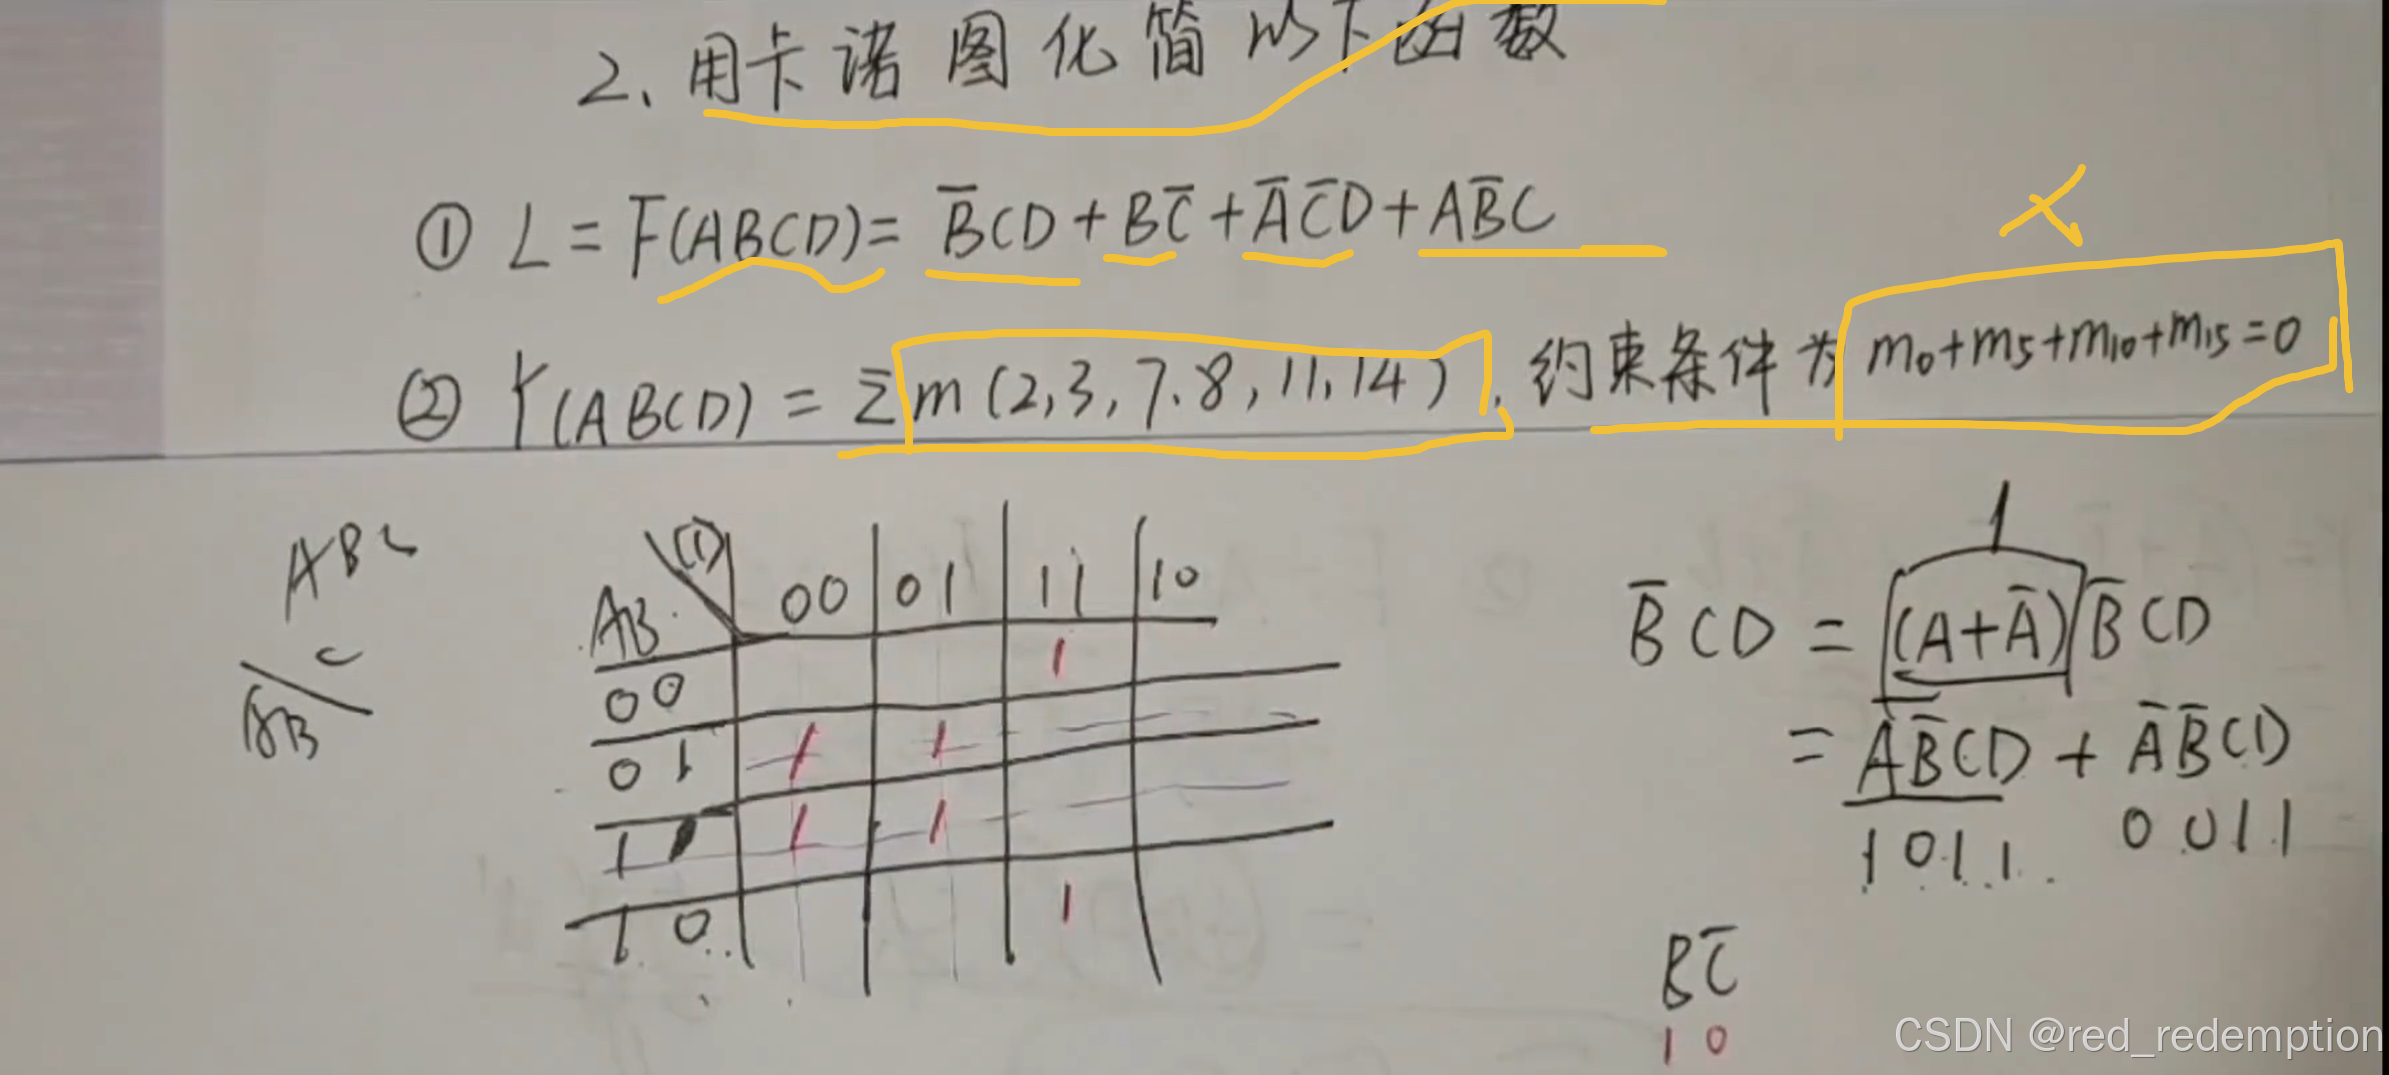 2、用卡诺图化简以下函数
① L = F(ABCD) = B̅CD + BC̅ + A̅C̅D + AB̅C
② Y(ABCD) = Σm(2,3,7.8,11,14), 约束条件为 m₀+m₅+m₁₀+m₁₅=0
X
ABC
C
AB
CD
AB 00 01 11 10
00 1
01 1 1
11 1 1
10 1
1
B̅CD = (A+A̅)B̅CD
= AB̅CD + A̅B̅CD
1011 0011
BC̅
10
CSDN @red_redemption